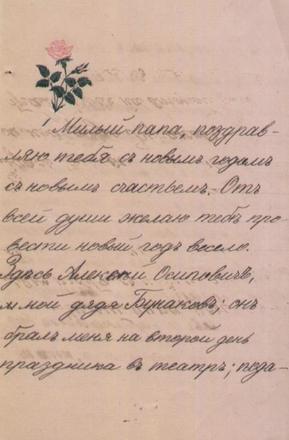 Милый папа, поздрав-
ляю тебя съ новымъ годомъ
съ новымъ счастьемъ. Отъ
всей души желаю тебѣ про-
вести новый годъ весело.
Здѣсь Алексѣй Осиповичъ,
и мой дядя Бураковъ; онъ
бралъ меня на второй день
праздника въ театръ; пода-